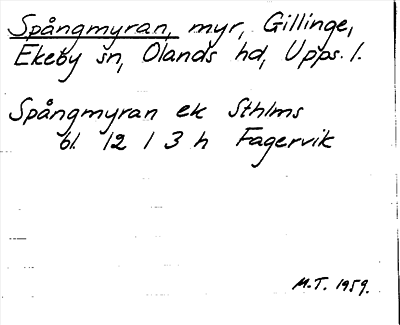 Spångmyran, myr, Gillinge,
Ekeby sn, Olands hd, Upps. l.
Spångmyran ek Sthlms
bl. 12 I 3 h Fagervik
M.T. 1959.